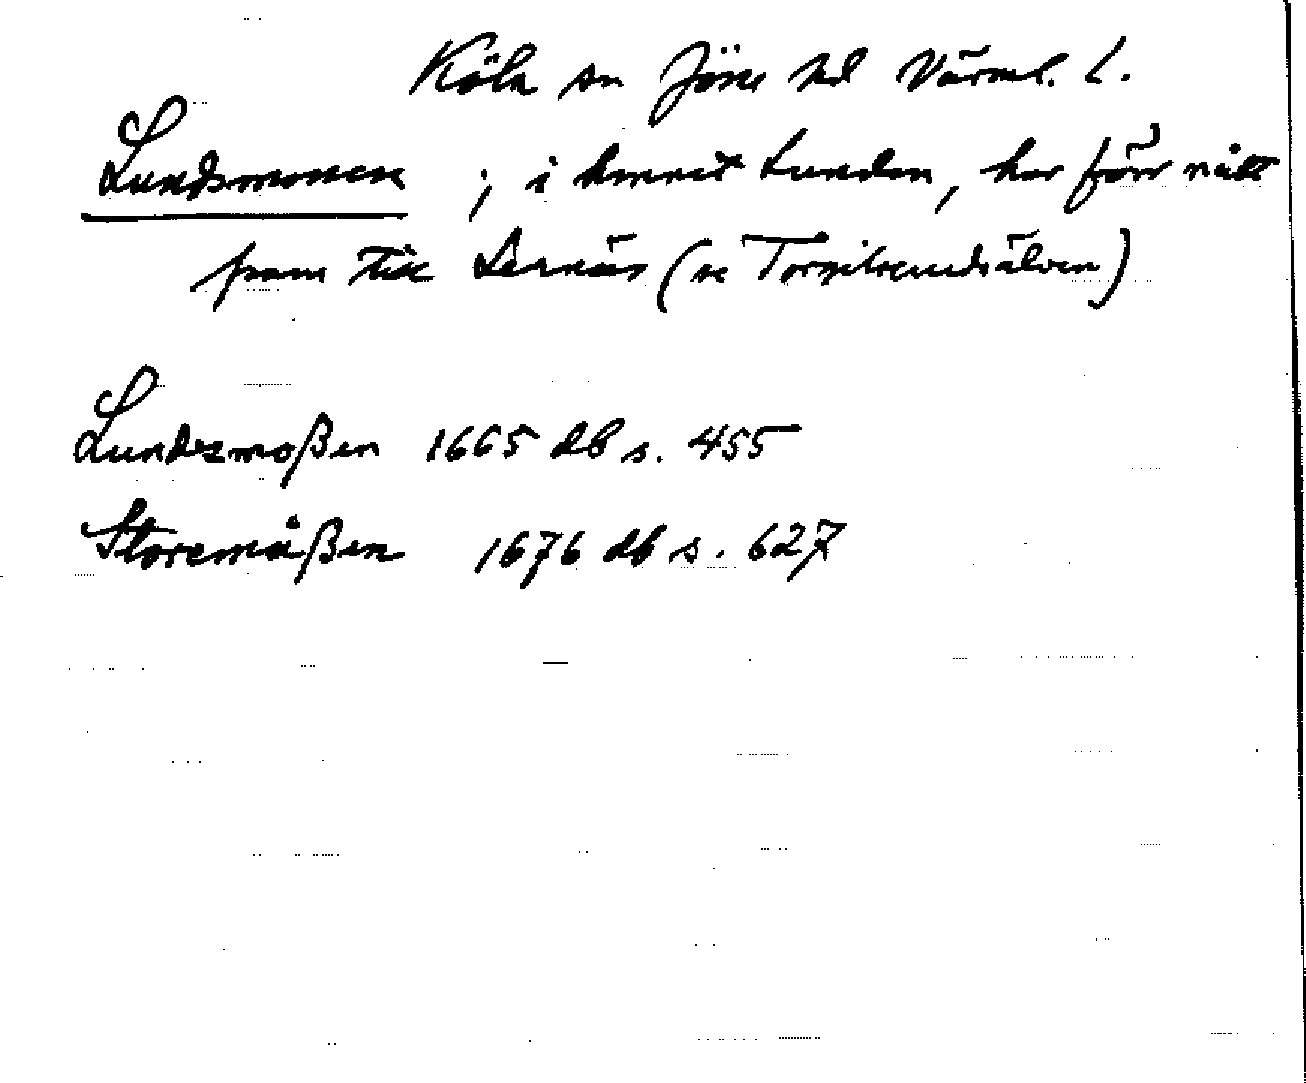 Köla sn Jösse hd Värml. L.
Lundsmossen ; i hemmet Lunden, har förr nått
fram till Lernäs (se Torgilsrudsälven)
Lundzmoßen 1665 db s. 455
Storemåßen 1676 db s. 627